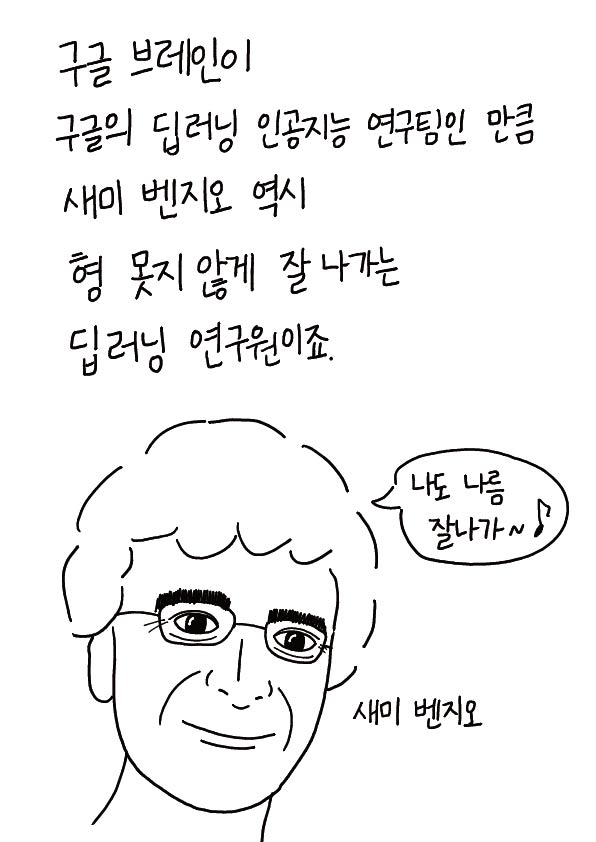 구글 브레인이
구글의 딥러닝 인공지능 연구팀인 만큼
새미 벤지오 역시
형 못지 않게 잘 나가는
딥러닝 연구원이죠.
나도 나름
잘나가~♪
새미 벤지오